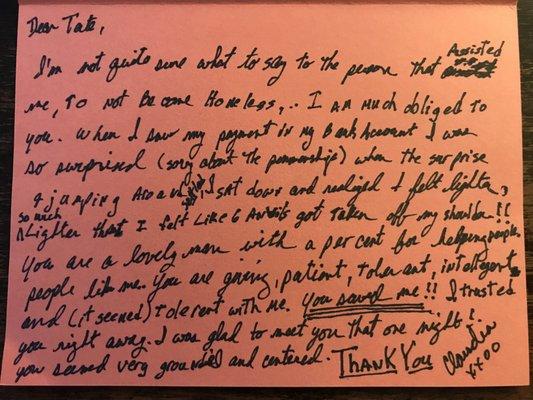 Dear Tate,
I'm not quite sure what to say to the person that Assisted
me, to not Become Homeless,.. I am much obliged to
you. When I saw my payment in my Bank Account I was
so surprised (sorry about the penmanship) when the surprise
& jumping Around, I sat down and realized I felt lighter,
so much
Lighter that I felt Like 6 got taken off my shoulder!!
You are a lovely man with a percent for helping people
people like me. You are giving, patient, tolerant, intelligent
and (it seemed) tolerent with me. You saved me!! I trusted
you right away. I was glad to meet you that one night!
you seemed very grounded and centered. THANK YOU Claudia
xxoo